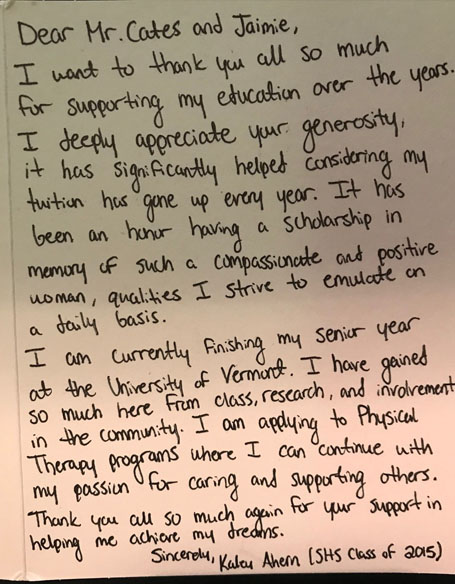 Dear Mr. Cates and Jaimie,
I want to thank you all so much
for supporting my education over the years.
I deeply appreciate your generosity,
it has significantly helped considering my
tuition has gone up every year. It has
been an honor having a scholarship in
memory of such a compassionate and positive
woman, qualities I strive to emulate on
a daily basis.
I am currently finishing my senior year
at the University of Vermont. I have gained
so much here from class, research, and involvement
in the community. I am applying to Physical
Therapy programs where I can continue with
my passion for caring and supporting others.
Thank you all so much again for your support in
helping me achieve my dreams.
Sincerely, Ahern (SHS Class of 2015)